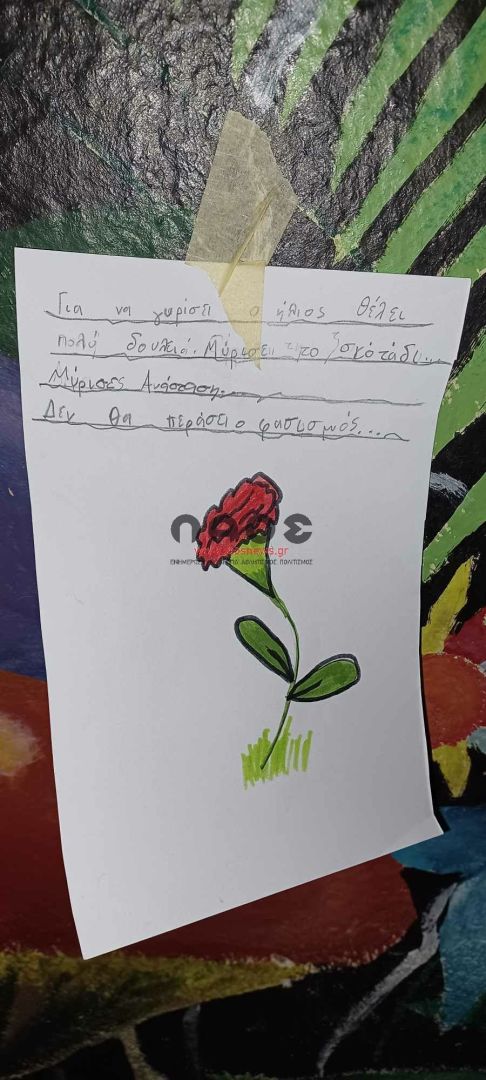 Για να γυρίσει ο ήλιος θέλει
πολύ δουλειά. Μύρισε το σκοτάδι...
Μύρισες Ανάσταση...
Δεν θα περάσει ο φασισμός....
ΠΑΡΕ
news.gr
ΑΘΛΗΤΙΣΜΟΣ ΠΟΛΙΤΙΣΜΟΣ